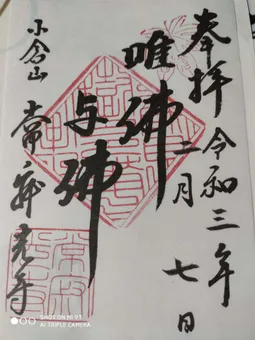 奉拝
令和三年
二月七日
唯佛
与佛
小倉山
常寂光寺
SHOT ON MI 9T
AI TRIPLE CAMERA